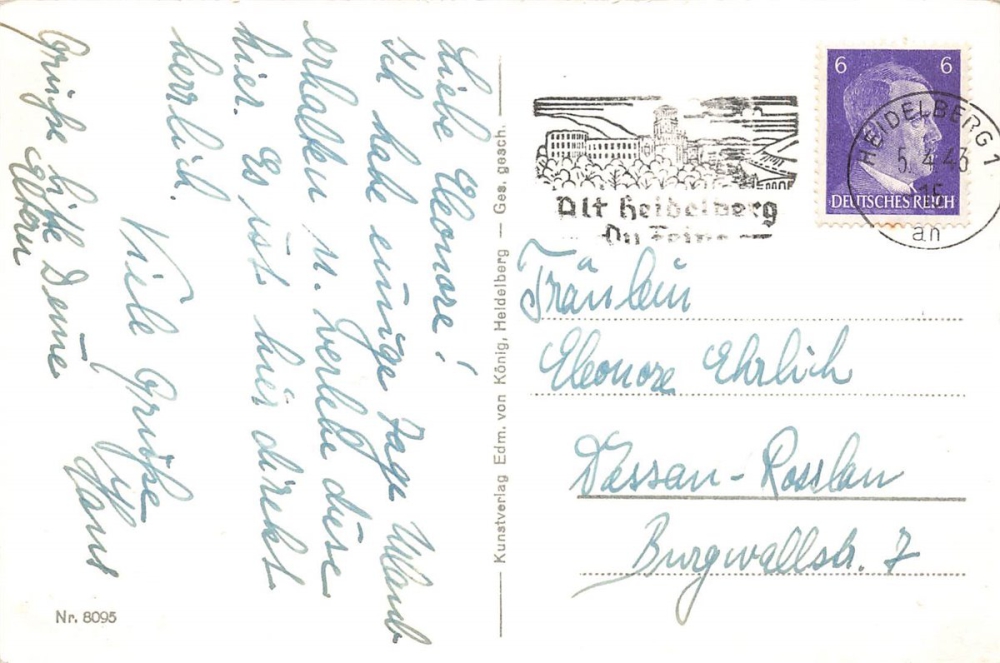 Liebe Eleonore!
Ich habe einige Tage Urlaub
erhalten u. verlebe diese
hier. Es ist hier direkt
herrlich.
Viele Grüße
Hans
Grüße bitte Deine
Eltern
Nr. 8095
Kunstverlag Edm. von König, Heidelberg – Ges. gesch.
Alt Heidelberg
Du Feine
6 6
DEUTSCHES REICH
HEIDELBERG 1
5.4.43
15
an
Fräulein
Eleonore Ehrlich
Dessau-Rosslau
Burgwallstr. 7